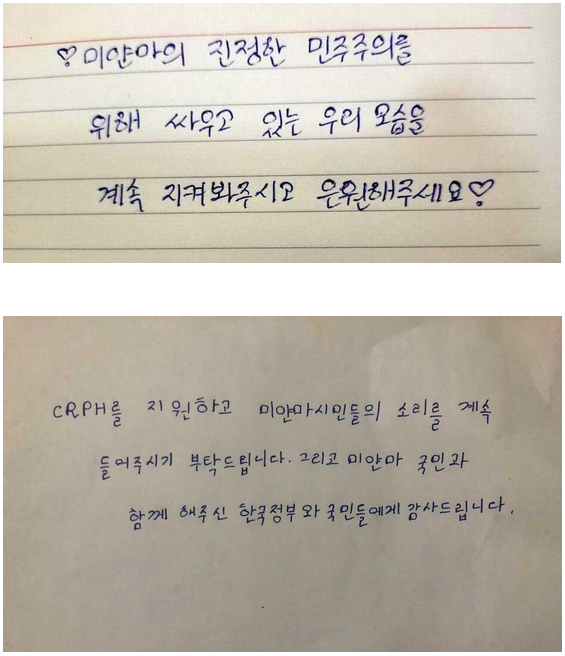 ♡미얀마의 진정한 민주주의를
위해 싸우고 있는 우리 모습을
계속 지켜봐주시고 응원해주세요♡
CRPH를 지원하고 미얀마시민들의 소리를 계속
들어주시기 부탁드립니다. 그리고 미얀마 국민과
함께 해주신 한국정부와 국민들에게 감사드립니다.